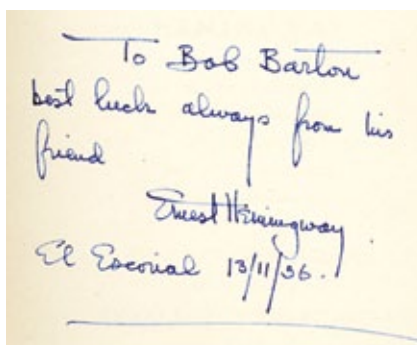 To Bob Barton
best luck always from his
friend
Ernest Hemingway
El Escorial 13/11/56.